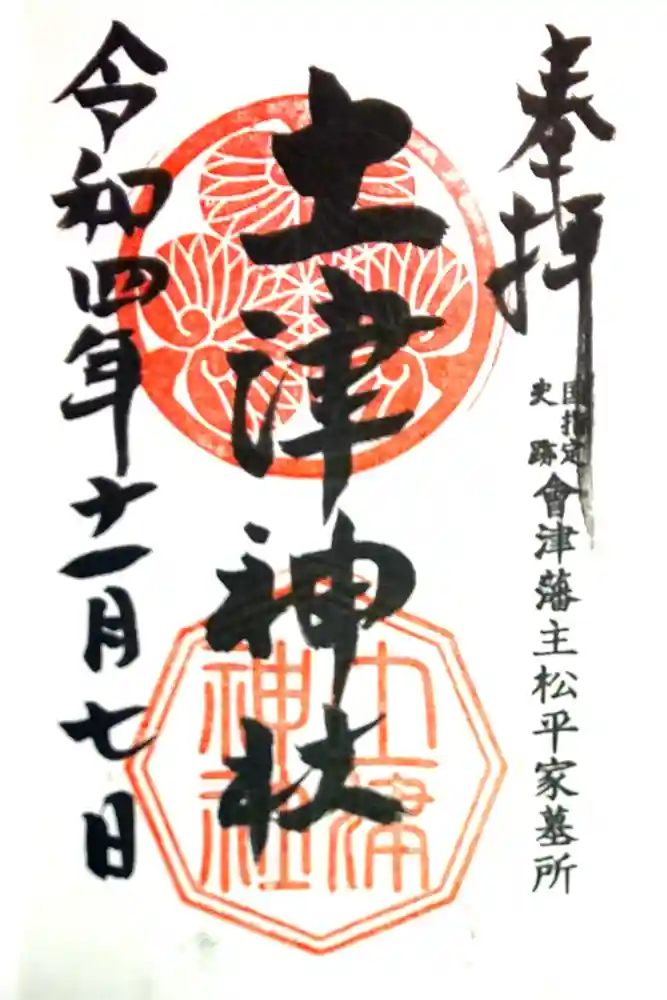 奉拝
国指定
史跡
會津藩主松平家墓所
土津神社
土津
神社
令和四年十一月七日